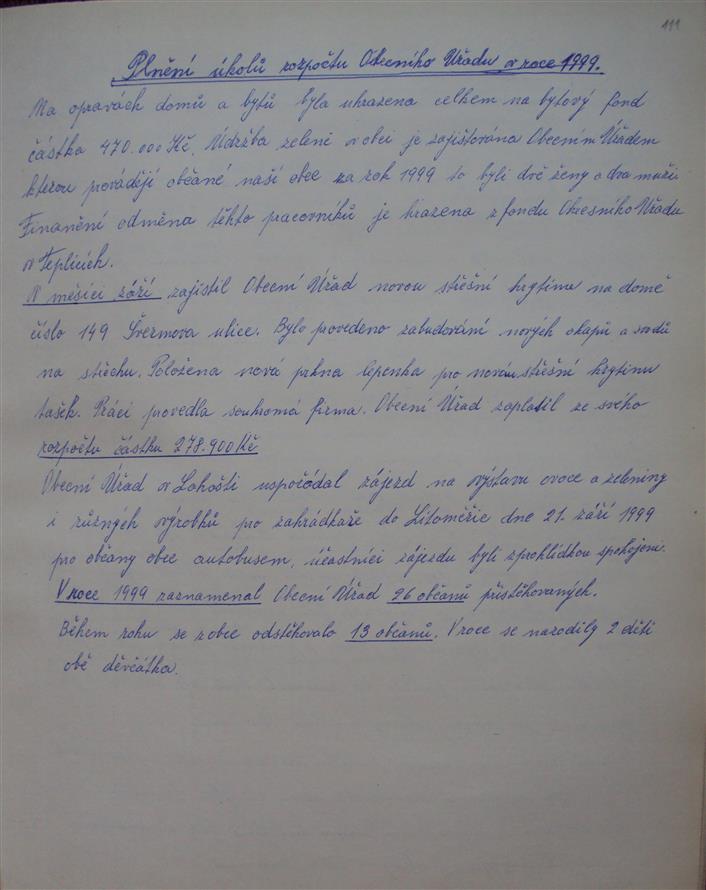 111
Plnění úkolů rozpočtu Obecního Úřadu v roce 1999.
Na opravách domů a bytů byla uhrazena celkem na bytový fond
částka 470.000 Kč. Údržba zeleně v obci je zajišťována Obecním Úřadem
kterou provádějí občané naší obce za rok 1999 to byli dvě ženy a dva muži.
Finanční odměna těhto pracovníků je hrazena z fondu Okresního Úřadu
v Teplicích.
V měsíci září zajistil Obecní Úřad novou střešní krytinu na domě
číslo 149 Švermova ulice. Bylo provedeno zabudování nových okapů a svodů
na střechu. Položena nová prkna lepenka pro novou střešní krytinu
tašek. Práci provedla souhromá firma. Obecní Úřad zaplatil ze svého
rozpočtu částku 278.900 Kč
Obecní Úřad v Lahošti uspořádal zájezd na výstavu ovoce a zeleniny
i různých výrobků pro zahrádkáře do Litoměřic dne 21. září 1999
pro občany obce autobusem, účastníci zájezdu byli z prohlídkou spokojeni.
V roce 1999 zaznamenal Obecní Úřad 26 občanů přistěhovaných.
Během roku se z obce odstěhovalo 13 občanů. V roce se narodily 2 děti
obě děvčátka.